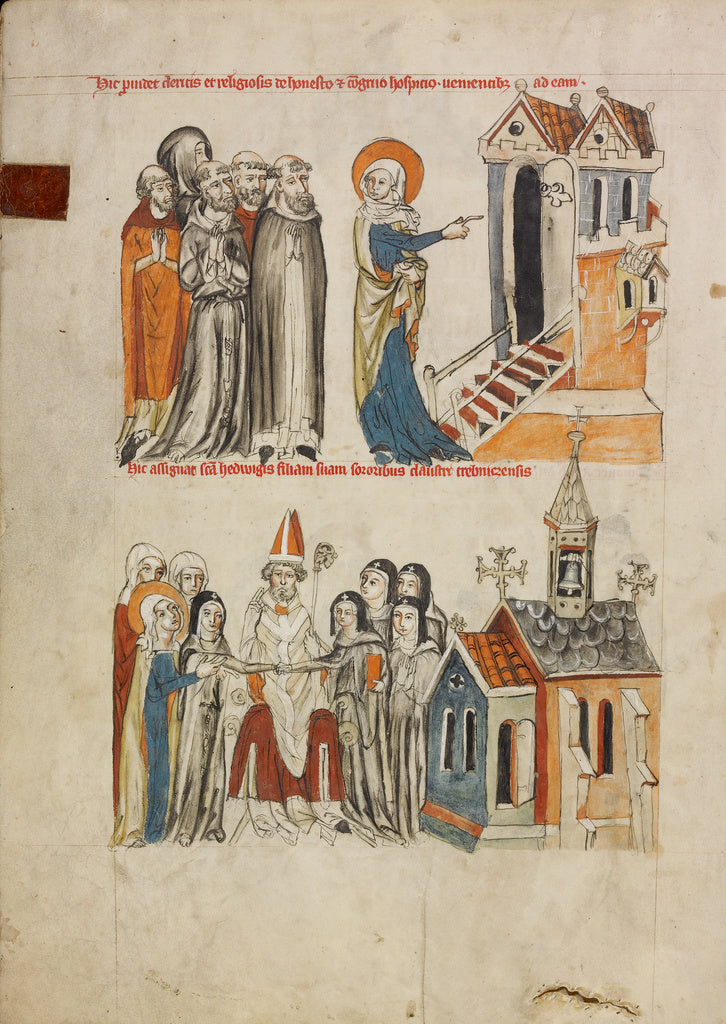 Hic prouidet clericis et religiosis de honesto ⁊ cōgruo hospicio · uenientibꝫ ad eam ·
Hic assignat scā hedwigis filiam suam sororibus claustri trebniczensis